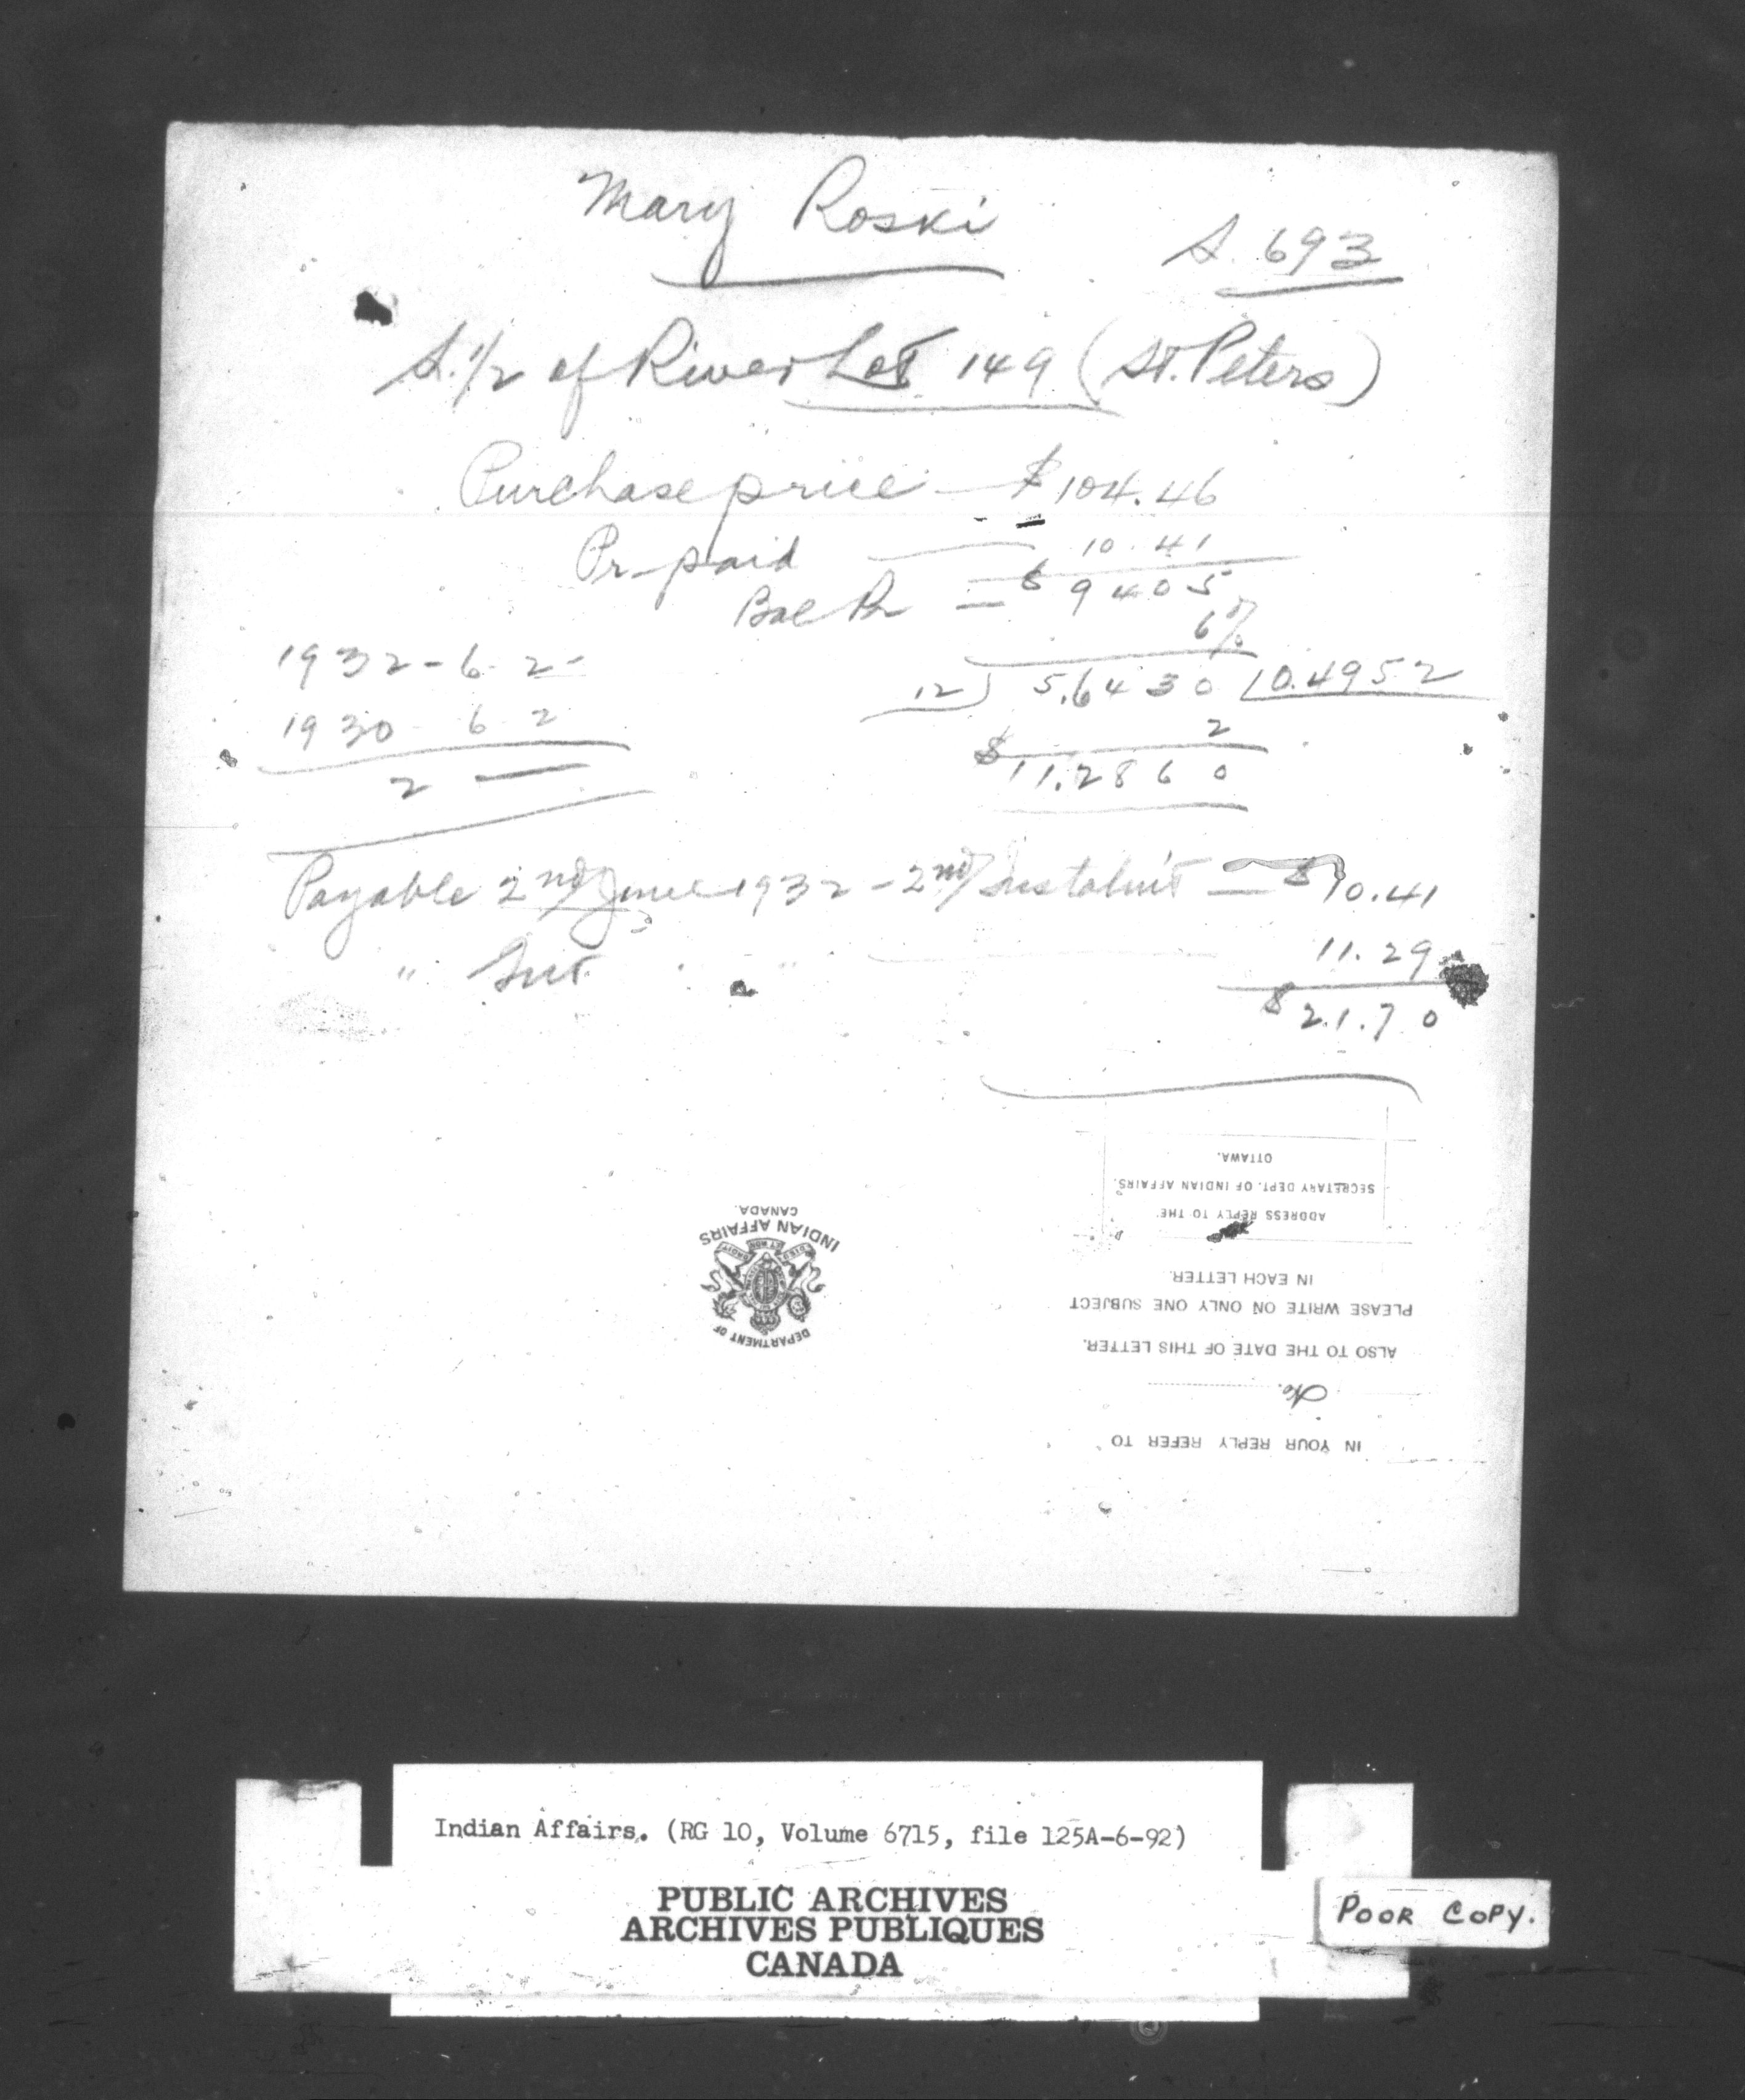 Mary Roski
S. 693
S. 1/2 of River Lot 149 (St. Peters)
Purchase price — $104.46
Pr-paid — 10.41
Bal Pr = $ 9405
6%
1932-6-2-
1930-6 2
2 —
12) 5.6430 | 0.4952
2
$11.2860
Payable 2nd June 1932 - 2nd Instalm't — $10.41
" Int. " — 11.29
$21.70
OTTAWA.
SECRETARY DEPT. OF INDIAN AFFAIRS.
ADDRESS REPLY TO THE
IN EACH LETTER.
PLEASE WRITE ON ONLY ONE SUBJECT
ALSO TO THE DATE OF THIS LETTER.
No.
IN YOUR REPLY REFER TO
DEPARTMENT OF
INDIAN AFFAIRS
CANADA.
Indian Affairs. (RG 10, Volume 6715, file 125A-6-92)
PUBLIC ARCHIVES
ARCHIVES PUBLIQUES
CANADA
POOR COPY.